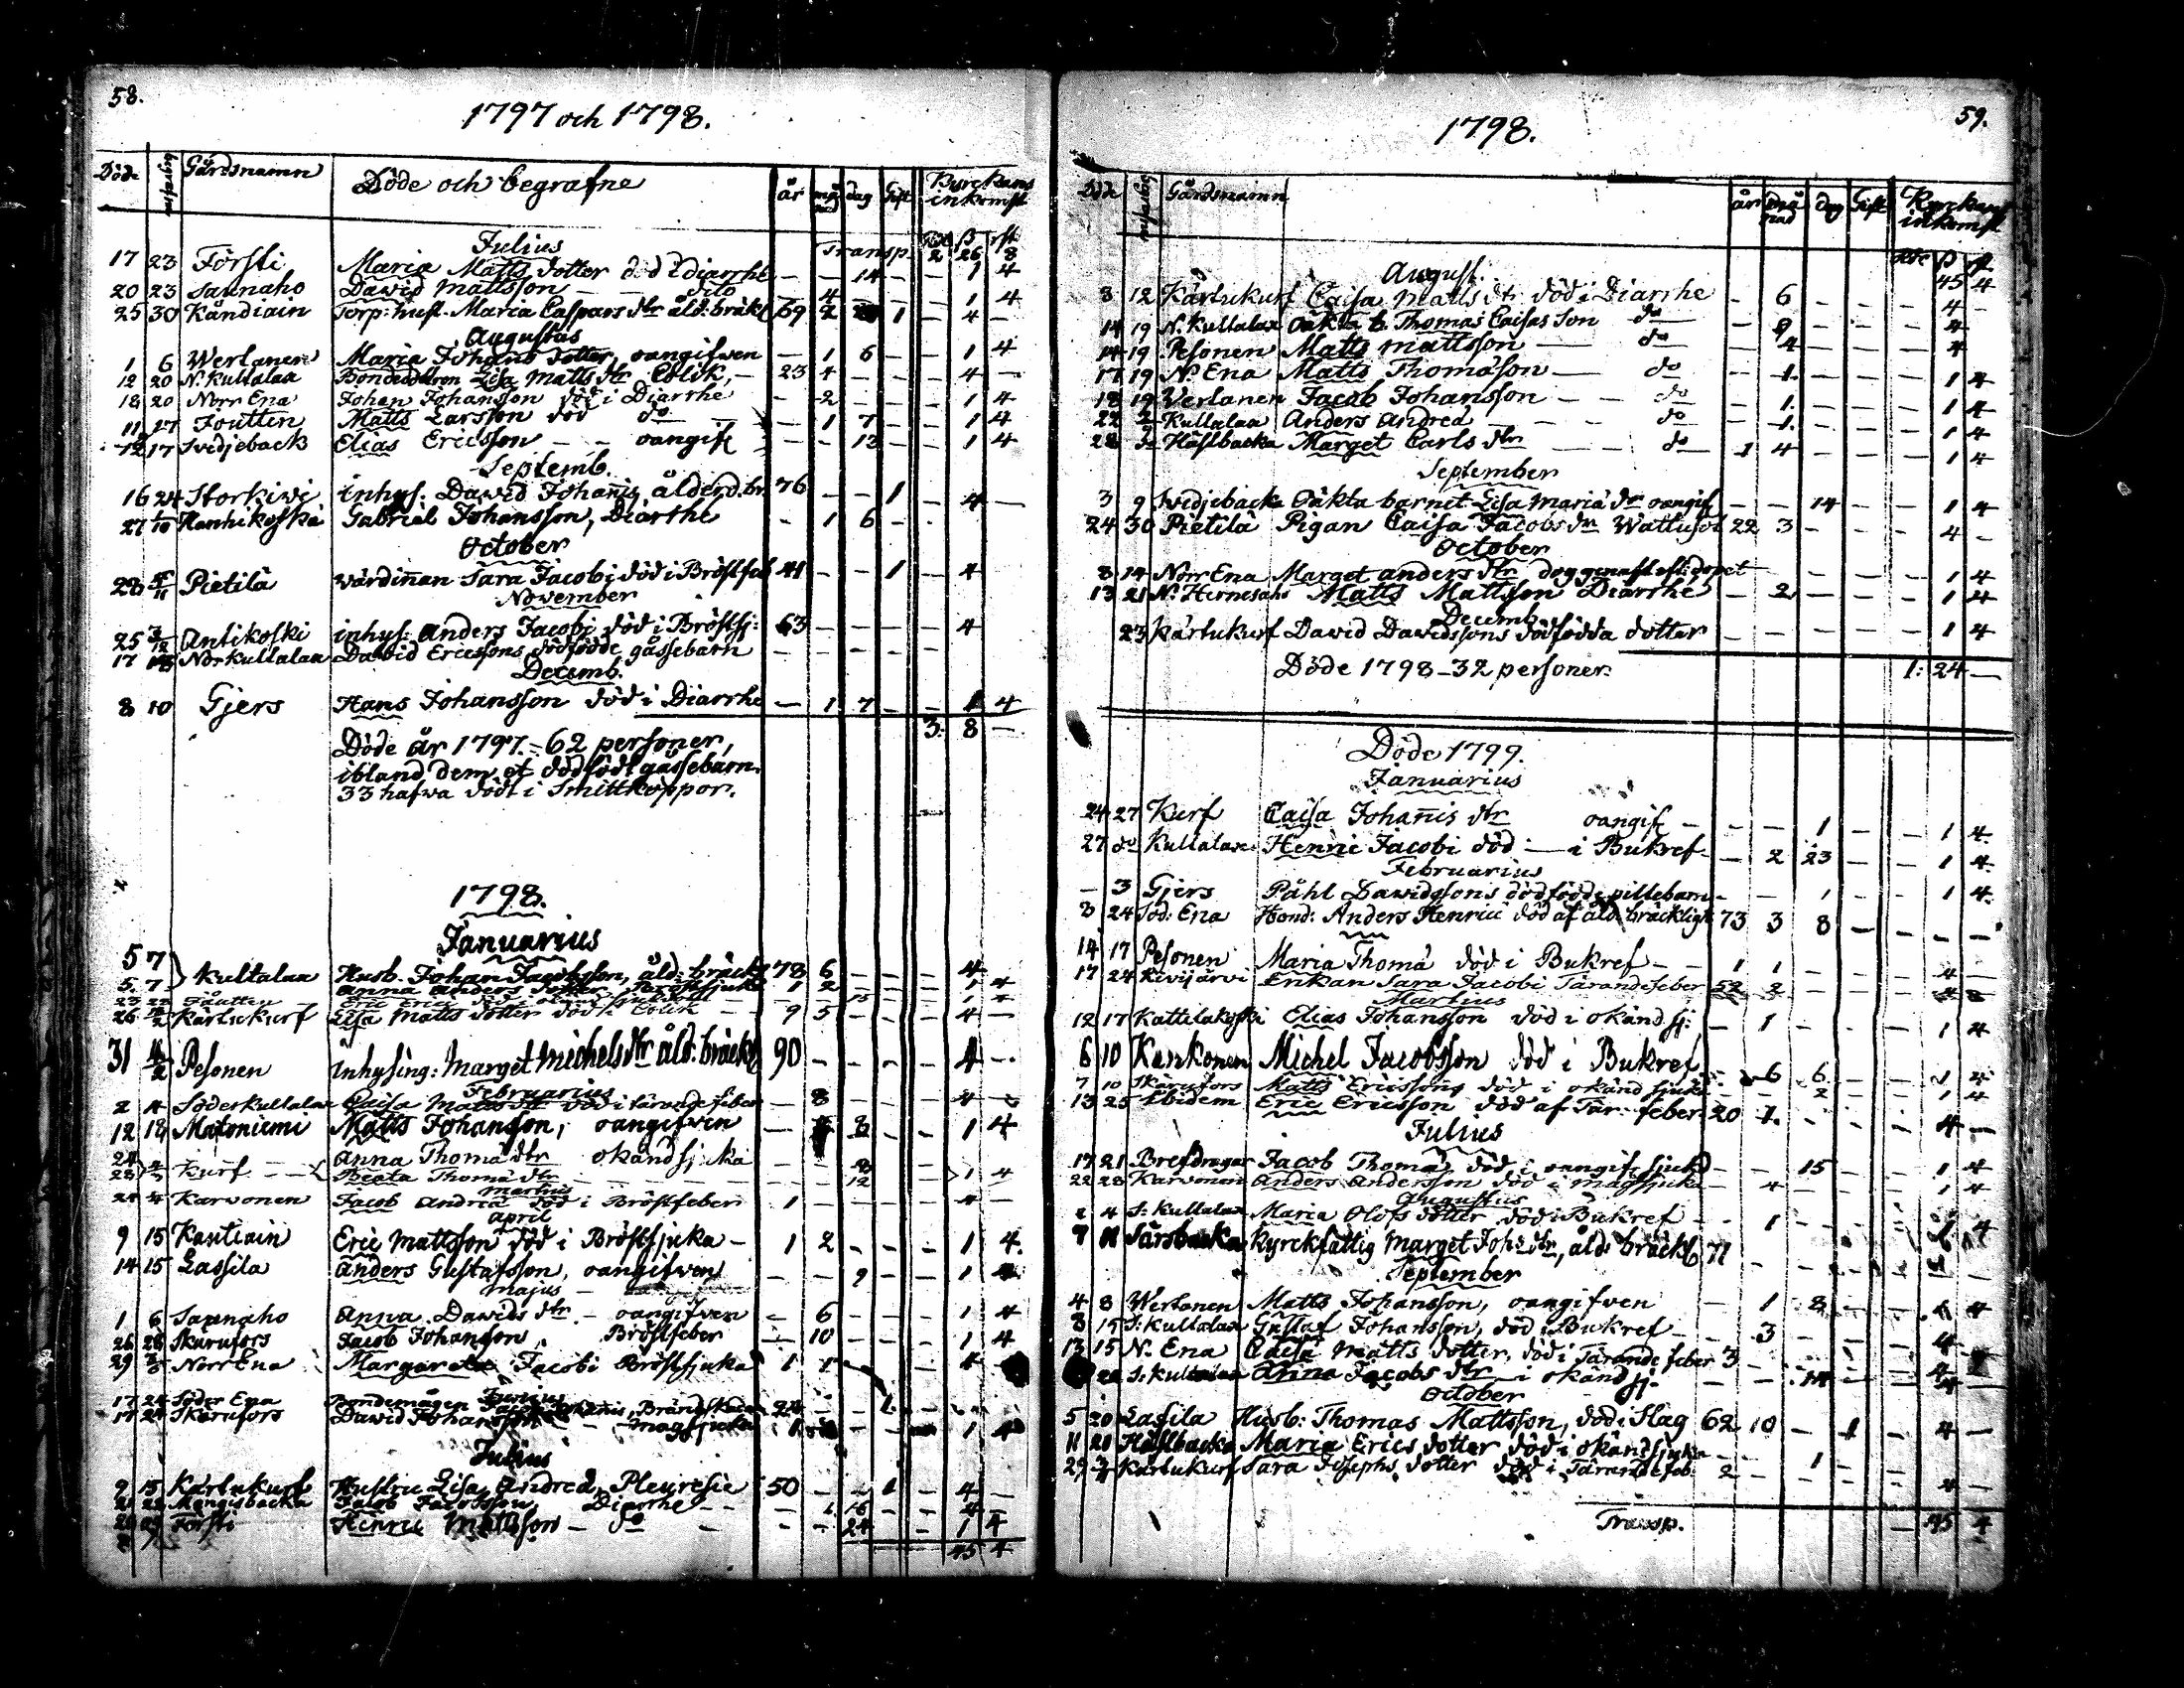 58.
1797 och 1798.
Döde Gårdsnamn Döde och begrafne år månad dag Gift Kyrckans inkomst
Julius Transp. 2 26 8
17 23 Försti Maria Matts dotter död i diarrhe — — 14 — — 1 4
20 23 Saunaho Dawid Mattsson — — dito — 4 — — — 1 4
25 30 Kåndiain Torp: hust. Maria Caspars dtr åld: bräkl 69 2 1 — 4 —
Augustus
1 6 Wertanen Maria Johans dotter, oangifwen — 1 6 — — 1 4
12 20 N. Kullalaa Lisa Matts dtr Colik, — 23 4 — — — 4 —
18 20 Norr Ena Johan Johansson död i Diarrhe — 2 — — — 1 4
11 17 Joutten Matts Larsson död do — 1 7 — — 1 4
12 17 Svidjeback Elias Ericsson — — oangif — — 13 — — 1 4
Septemb.
16 24 Storkiwi inhys. Dawid Johanis, ålderd. br. 76 — — 1 — 4 —
27 1/10 Hanhikoski Gabriel Johansson, Diarrhe — 1 6 —
October
28 5/11 Pietilä wärdinnan Sara Jacobi död i Bröstfeb 41 — — 1 — 4
November
25 3/12 Antikoski inhys: Anders Jacobi död i Bröstsj: 63 — — — — 4
17 Nörkullalaa Dawid Ericssons dödfödde gåssebarn — — — —
Decemb.
8 10 Gjers Hans Johansson död i Diarrhe — 1 7 — — 1 4
3. 8 —
Döde år 1797. — 62 personer,
ibland dem et dödfödt gåssebarn.
33 hafwa dödt i Smittkoppor.
1798.
Januarius
5 7 Kullalaa Husb. Johan Jacobsson, åld: bräckl 78 6 — — — 4
5. 7 Anna Anders dotter 1 2 — — — 1 4
Eric Erici
26 Kärtukurf Lisa Matts dotter död i Colik — — 9 5 — — — 4 —
31 4/2 Pesonen inhysing: Marget Michels dtr åld: bräckl 90 — — — — 4 —
Februarius
2 4 Söderkullalaa Caisa Matts dtr död i tärande feber — 8 — — — 4 —
12 18 Matoniemi Matts Johansson, oangifven — 8 — — 1 4
24 Kurf Anna Thomä dtr okänd sjuka — — 8
28 Beata Thomä dtr — — 12 — 1 4
Martius
24 4 Karvonen Jacob Andreä död i Bröstfeber 1 — — — — 4 —
April
9 15 Kantiain Eric Mattsson död i Bröstsjuka — 1 2 — — — 1 4.
14 15 Lassila Anders Gustafsson, oangifven — — 9 — — 1 4
Majus
1 6 Saunaho Anna Dawids dtr — oangifven — 6 — — — 1 4
26 28 Skurufors Jacob Johansson Bröstfeber — 10 — — — 1 4
29 3/6 Norr Ena Margareta Jacobi Bröstsjuka 1 1
Junius
17 24 Söder Ena Bondemågen
17 24 Skurufors Dawid Johansson — magsjuka 1 — — 1 4
Julius
9 15 Kärtukurf Hustru Lisa Andreä, Pleuresie 50 — — 1 — 4 —
21 22 Mangisbacka Jacob Jacobsson Diarrhe — — 1 16 — — 4 —
Försti Henric Mattsson — do — — — 24 — 1 4
45 4
59.
1798.
Döde Gårdsnamn år månad dag Gift Kyrckans inkomst
August. 45 4
8 12 Kärtukurf Caisa Matts dtr död i Diarrhe — 6 — — — 4 —
14 19 N. Kullalaa Oäkta b. Thomas Caisas Son do — 9 — — — 4
14 19 Pesonen Matts Mattsson — do — 4 — — — 4
17 19 N. Ena Matts Thomäson — do — 1 — — — 1 4
18 19 Vertanen Jacob Johansson — — do — 1 — — — 1 4
22 Kullalaa Anders Andreä — do — 1 — — — 1 4
28 Häslbacka Marget Carls dtr do 1 4 — — — 1 4
September
3 9 Svidjebacka Oäkta barnet Lisa Maria dtr oangif — — 14 — — 1 4
24 30 Pietilä Pigan Caisa Jacobs dtr Wattusot 22 3 — — — 4 —
October
8 14 Norr Ena Marget Anders dtr dog genast eft: dopet — — — — 1 4
13 21 N. Hirnesaho Matts Mattsson Diarrhé — 2 — — — 1 4
Decemb
23 Kärtukurf David Davidssons dödfödda dotter — — — — — 1 4
Döde 1798 — 32 personer. 1: 24 —
Döde 1799.
Januarius
24 27 Kurf Caisa Johanis dtr oangif — — — 1 — — 1 4.
27 do Kullalaa Henric Jacobi död — i Bukref — 2 23 — — 1 4.
Februarius
— 3 Gjers Påhl Dawidssons dödfödde pillebarn — — 1 — — 1 4.
8 24 Söd: Ena Bond: Anders Henrici död af åld. bräcklight 73 3 8 — — — —
14 17 Pesonen Maria Thomä död i Bukref — — 1 1 — — — 4 —
17 24 Kivijärvi Enkan Sara Jacobi Tärandefeber 52 2 — — —
Martius
12 17 Kattilakoski Elias Johansson död i okänd sj: — 1 — — — 1 4
6 10 Kankonen Michel Jacobsson död i Bukref 6 6 — — 1 4
7 10 Skurufors Matts Ericssons död i okänd sjuka — — 2 — — 1 4
13 25 Ibidem Eric Ericsson död af Tär: feber. 20 1. — — — 4 —
Julius
17 21 Brefdragar Jacob Thomä död i oangif sjukd — — 15 — — 1 4
22 28 Karvonen Anders Andersson död i magsjuka — 4 — — — 1 4
Augustus
2 4 S: Kullalaa Maria Olofs dotter död i Bukref — — 1 — — — 1 4
9 11 Särsbacka Kyrckfattig Marget Joh: dtr, åld: bräckl 71 — — — —
September
4 8 Wertanen Matts Johansson, oangifven — 1 8 — — 1 4
8 15 S: Kullalaa Gustaf Johansson, död i Bukref — — 3 — — — 4
13 15 N. Ena Caisa Matts dotter, död i Tärande feber 3 — — — — 4
22 S: Kullalaa Anna Jacobs dtr — i okänd sj. — — 14 — —
October
5 20 Lassila Husb: Thomas Mattsson, död i Slag 62 10 — 1 — 4 —
11 20 Häslbacka Maria Erics dotter död i okänd sjuka — — 1 — —
29 Kärtukurf Sara Josephs dotter död i Tärande feb: 2 — — — — 4 —
Transp. — 45 4